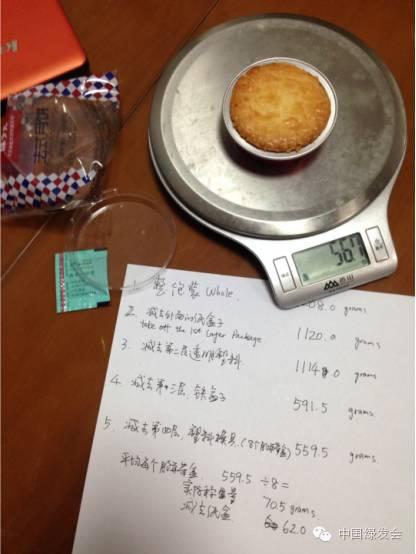 整包装 Whole.
08.0 grams
2. 减去外面的纸盒子 1120.0 grams
take off the 1st layer Package
3. 减去第二层透明塑料 1114.0 grams
4. 减去第三层,铁盒子 591.5 grams
5. 减去第四层,塑料模具,(8个月饼带盒) 559.5 grams
平均每个月饼带盒 559.5 ÷8=
实际称重量 70.5 grams
减去纸盒 62.0
香山
中国绿发会